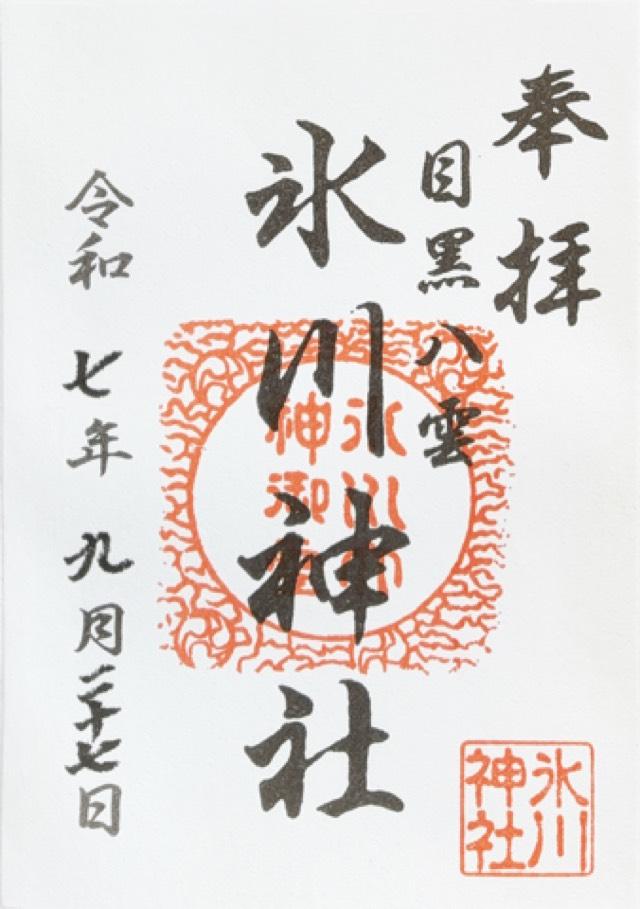 奉拝
目黒八雲
氷川神社
令和七年九月二十七日
氷川
神社